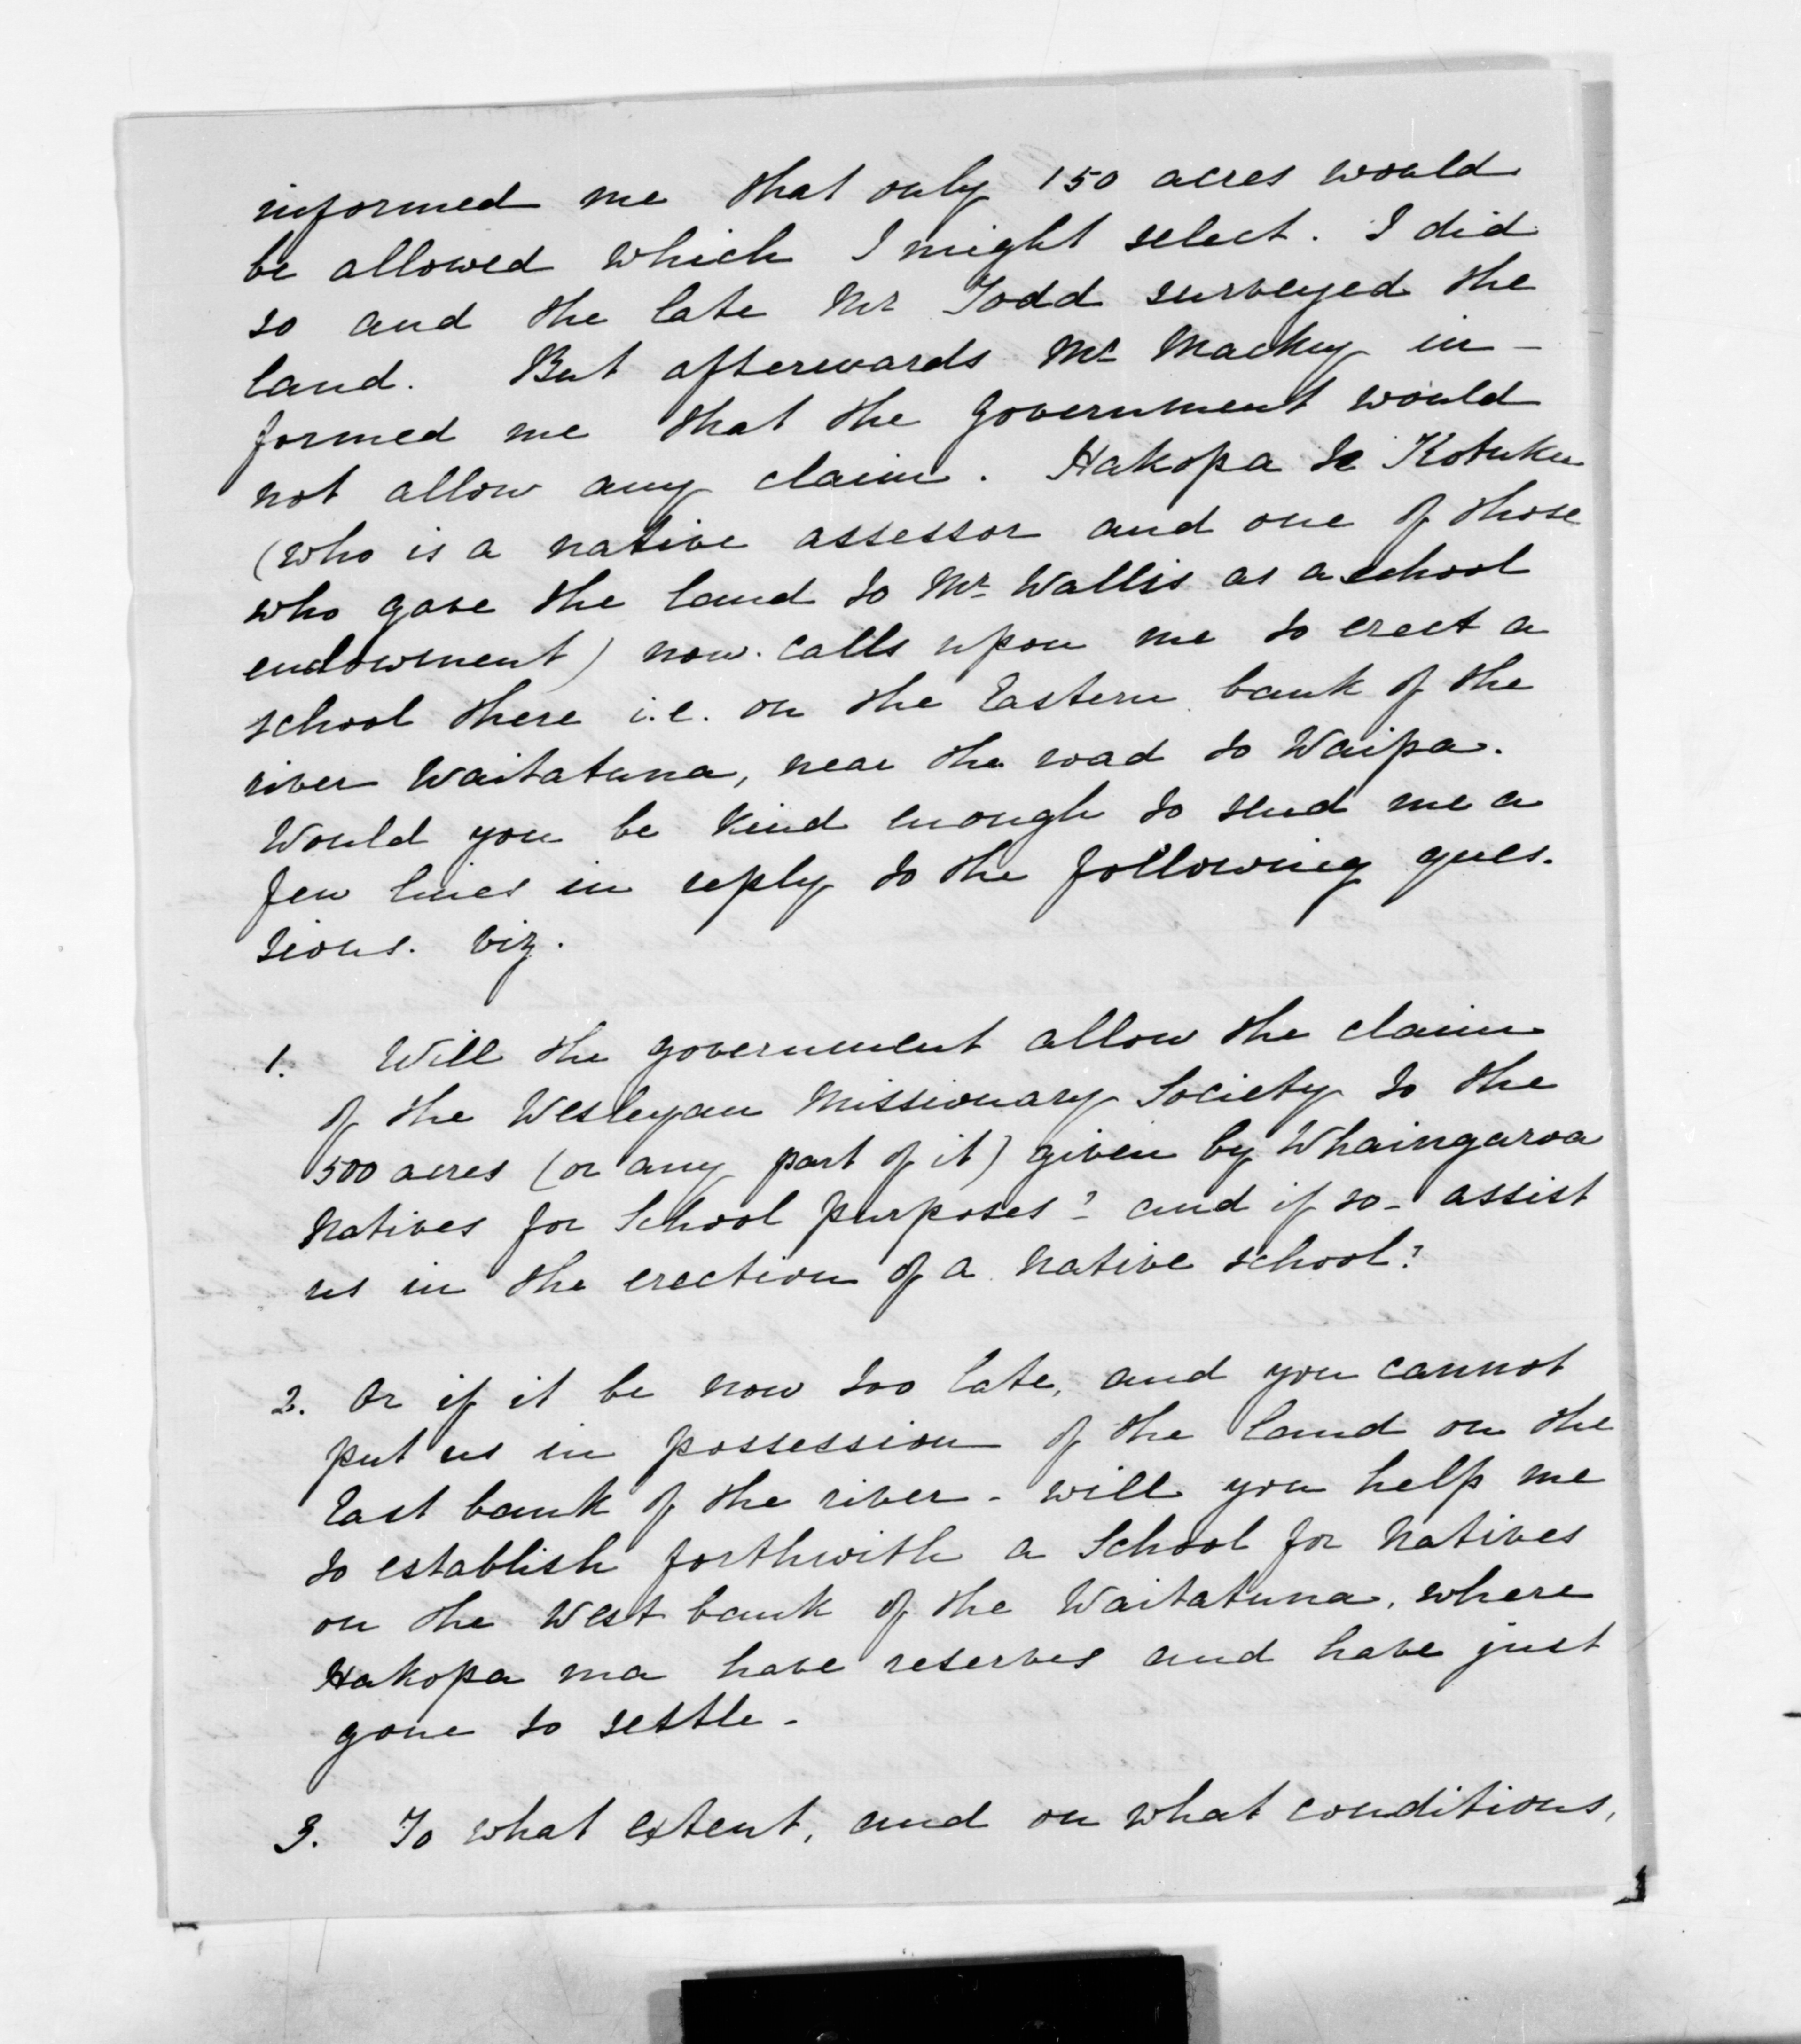 informed me that only 150 acres would
be allowed which I might select. I did
so and the late Mr Todd surveyed the
land. But afterwards Mr Mackey in-
formed me that the government would
not allow any claim. Hakopa te Kotuku
(who is a native assessor and one of those
who gave the land to Mr Wallis as a school
endowment) now calls upon me to erect a
school there i.e. on the Eastern bank of the
river Waitatuna, near the road to Waipa.
Would you be kind enough to send me a
few lines in reply to the following ques-
tions. viz.
1. Will the government allow the claim
of the Wesleyan Missionary Society to the
500 acres (or any part of it) given by Whaingaroa
Natives for School purposes? and if so - assist
us in the erection of a native school?
2. Or if it be now too late, and you cannot
put us in possession of the land on the
East bank of the river - will you help me
to establish forthwith a School for Natives
on the West bank of the Waitatuna, where
Hakopa ma have reserves and have just
gone to settle -
3. To what extent, and on what conditions,